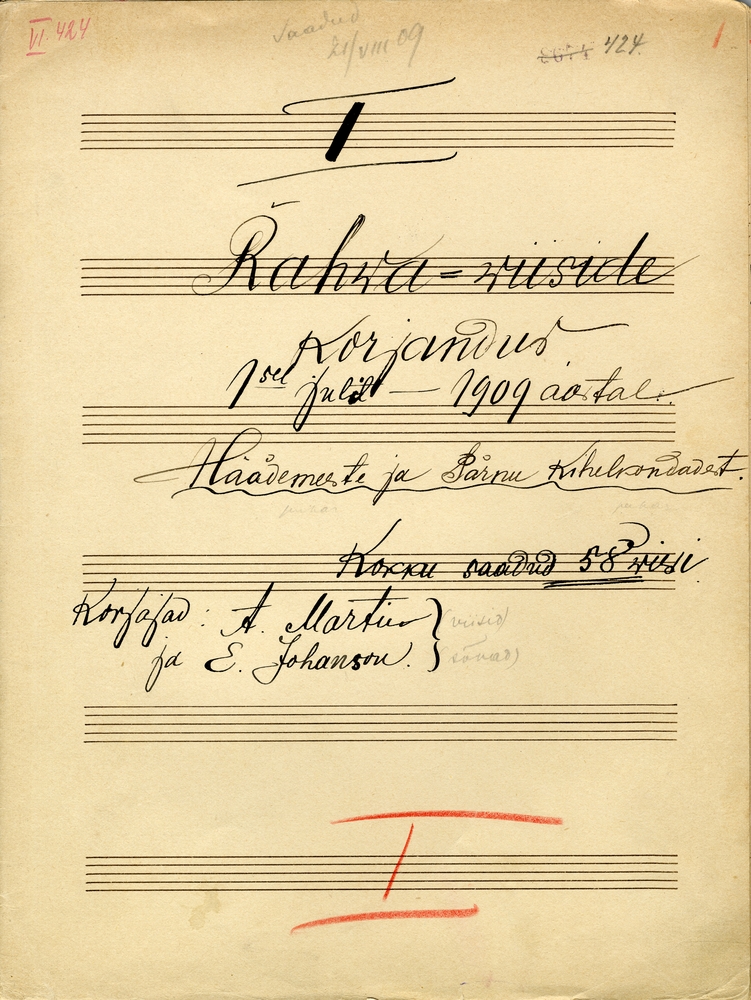 VI. 424
Saadud
21/VIII 09
424.
1
I
Rahwa=wiiside
Korjandus
1sel julil — 1909 aastal.
Häädemeeste ja Pärnu Kihelkondadest.
Kokku saadud 58 wiisi.
Korjajad: A. Martin (viisid)
ja E. Johanson. (sõnad)
I